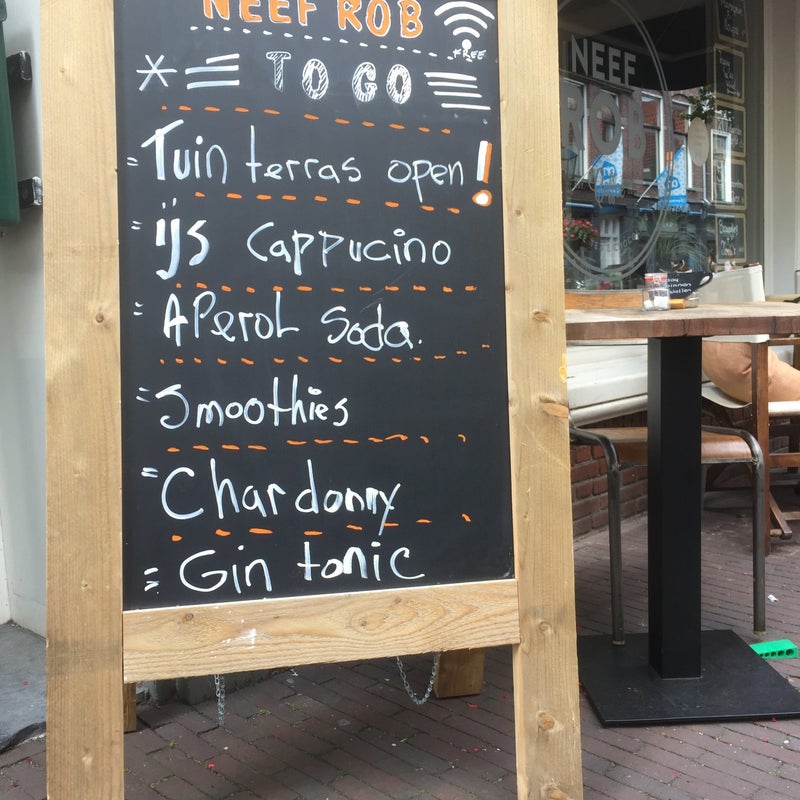 NEEF ROB
FREE
* = TO GO
= Tuin terras open!
= ijs Cappucino
= APerol Soda.
= Smoothies
= Chardonny
= Gin tonic
NEEF
ROB